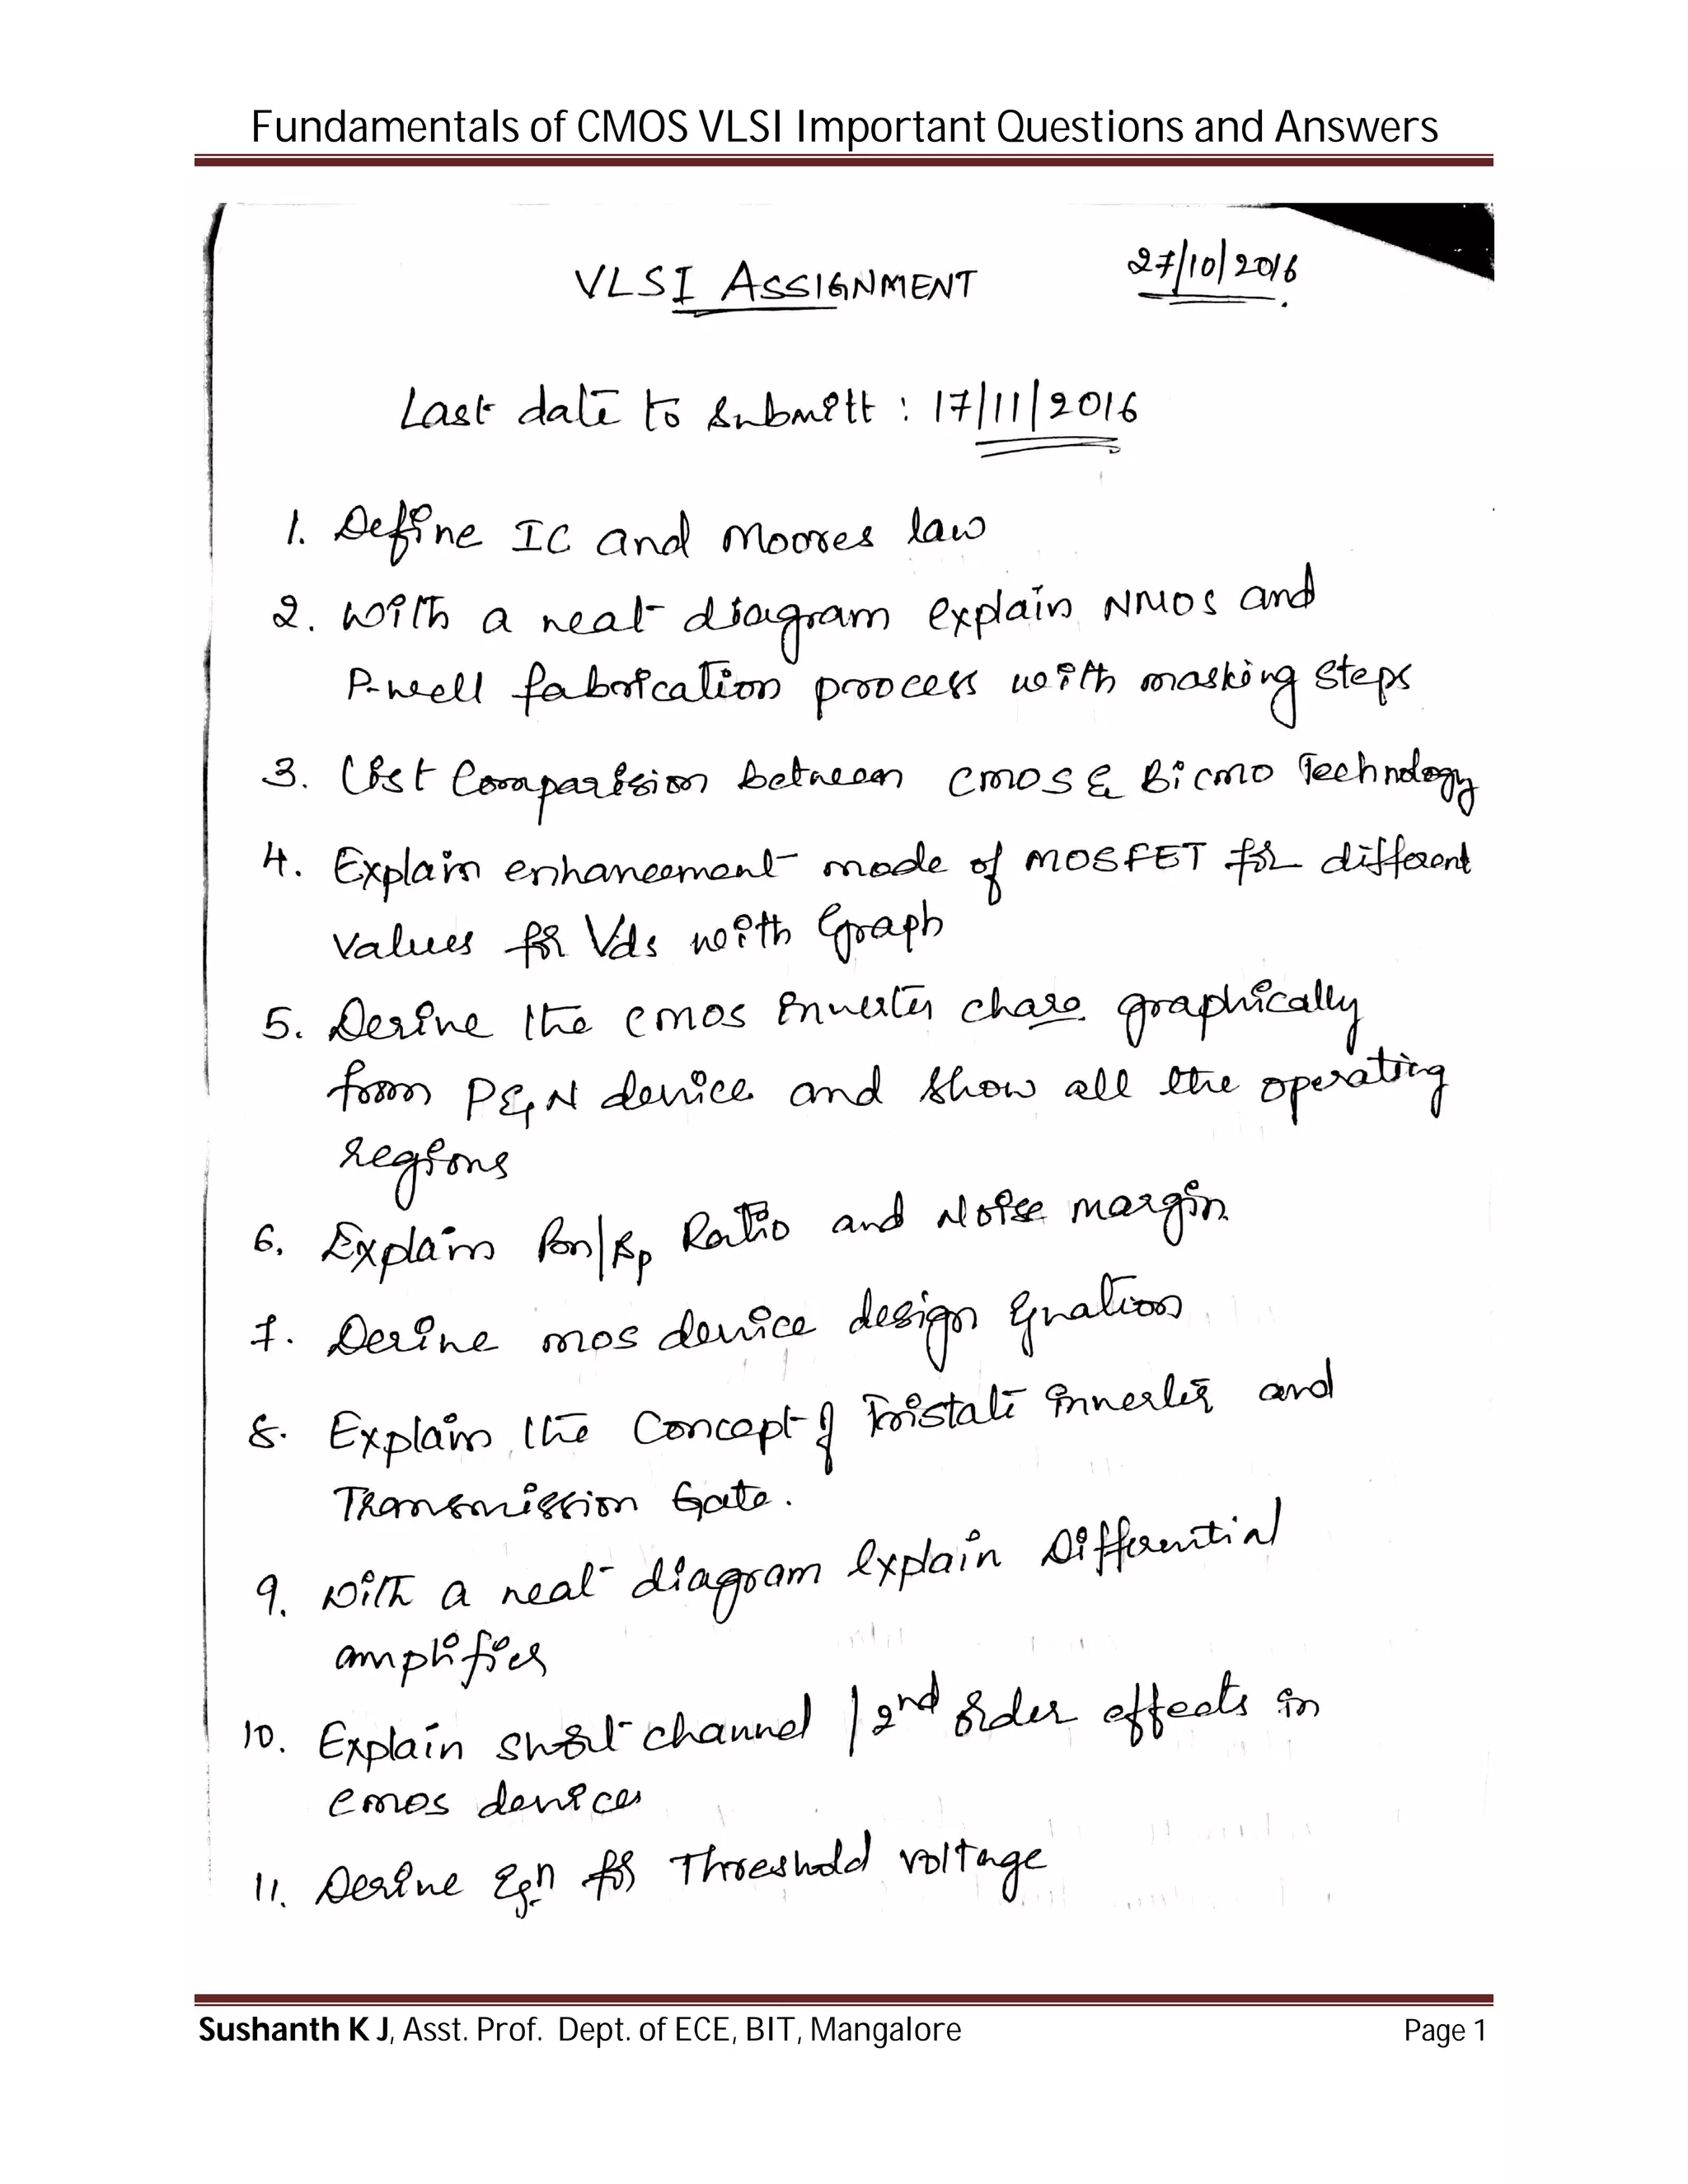 Fundamentals of CMOS VLSI Important Questions and Answers
VLSI ASSIGNMENT 27/10/2016
Last date to Submitt : 17/11/2016
1. Define IC and Moores law
2. With a neat diagram explain NMOS and
P-well fabrication process with masking steps
3. List Comparission between CMOS & BiCMO Technology
4. Explain enhancement mode of MOSFET for different
values for Vds with Graph
5. Derive the CMOS Inverter chara graphically
from P & N device and show all the operating
regions
6. Explain βn/βp Ratio and Noise margin
7. Derive MOS device design Equation
8. Explain the Concept of Tristate inverter and
Transmission Gate.
9. With a neat diagram explain Differential
amplifier
10. Explain short channel / 2nd order effects in
CMOS devices
11. Derive Eqn for Threshold voltage
Sushanth K J, Asst. Prof. Dept. of ECE, BIT, Mangalore Page 1